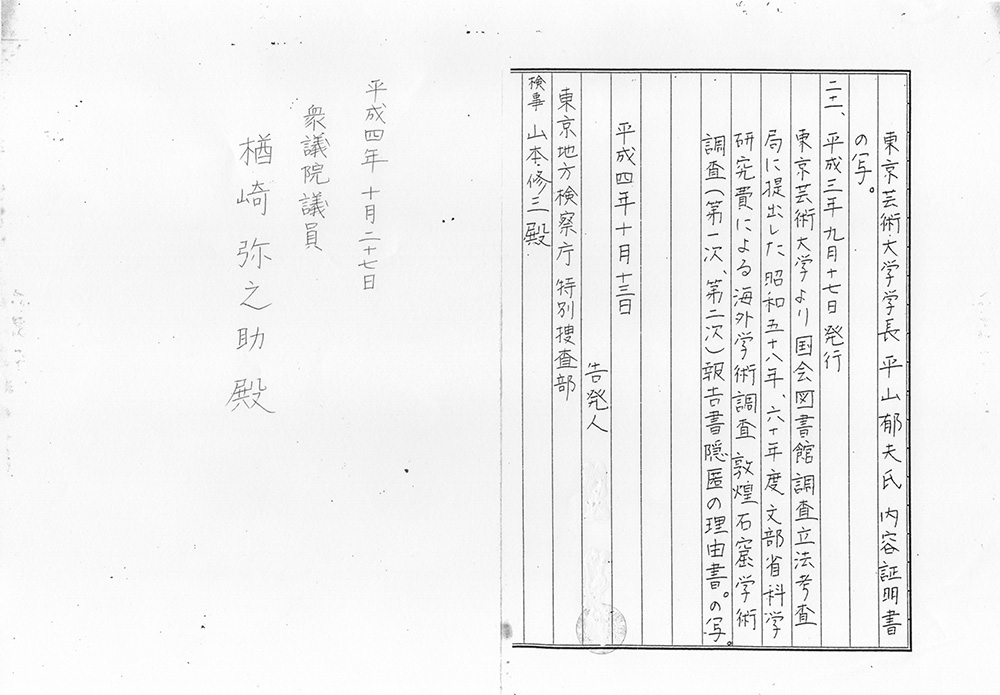 東京芸術大学学長 平山郁夫氏 内容証明書
の写。
二十一、平成三年九月十七日 発行
東京芸術大学より国会図書館調査立法考査
局に提出した昭和五十八年、六十年度文部省科学
研究費による海外学術調査 敦煌石窟学術
調査(第一次、第二次)報告書隠匿の理由書。の写。
平成四年十月十三日
告発人
東京地方検察庁 特別捜査部
検事 山本修三殿
平成四年 十月二十七日
衆議院議員
楢崎 弥之助 殿